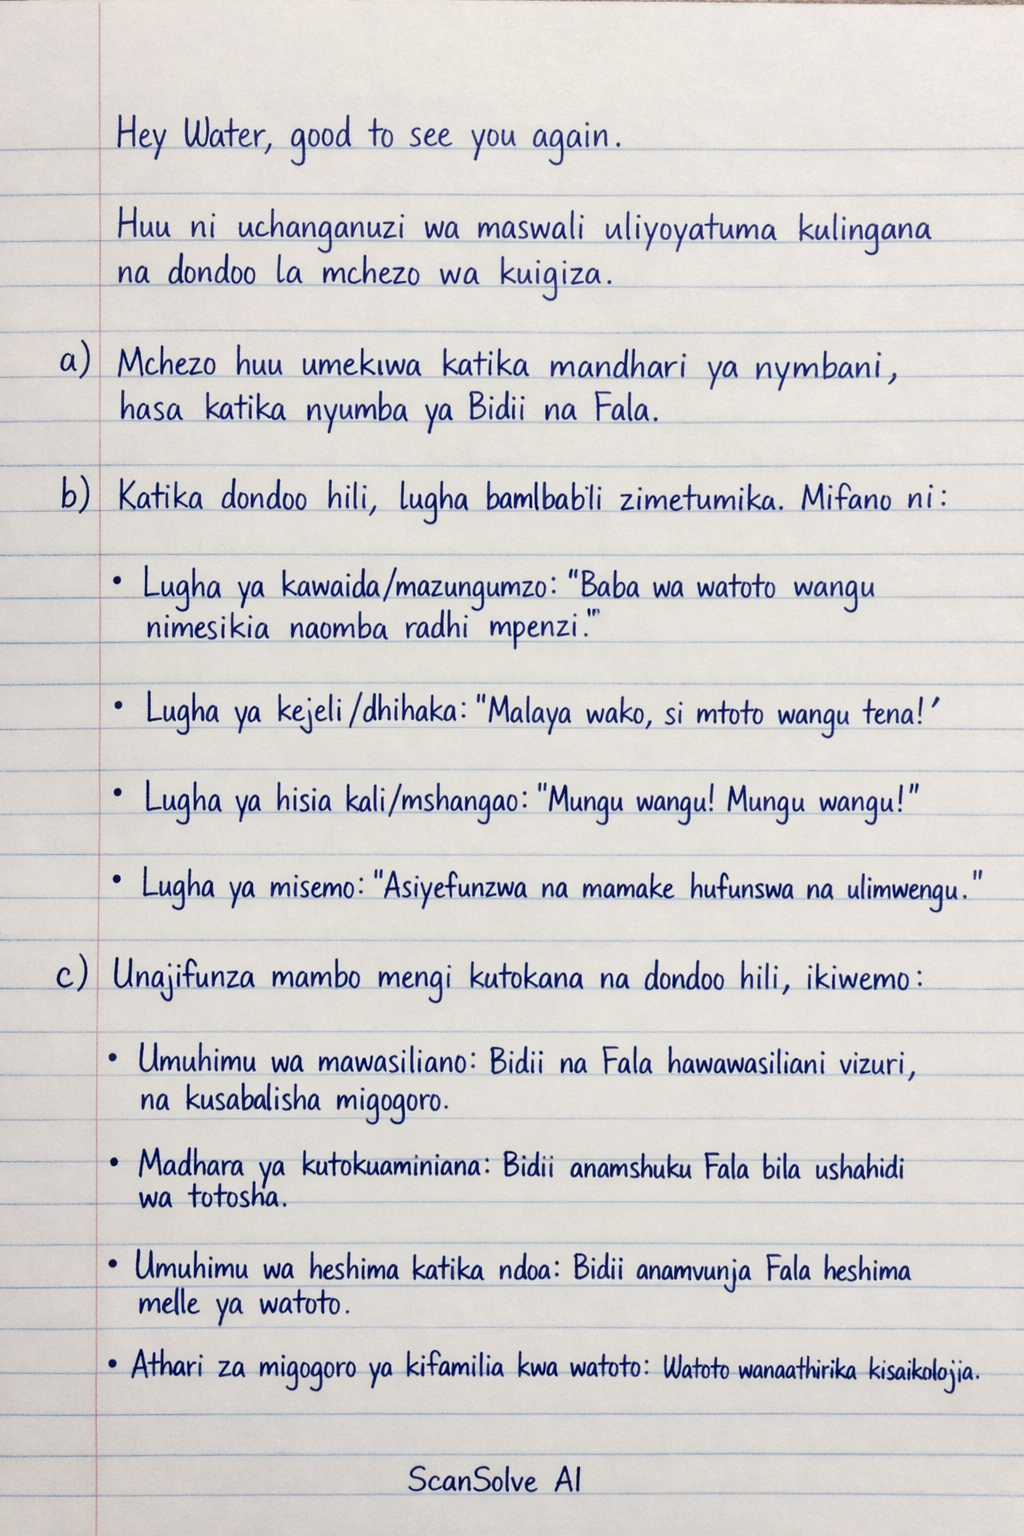 Hey Water, good to see you again.
Huu ni uchanganuzi wa maswali uliyoyatuma kulingana
na dondoo la mchezo wa kuigiza.
a) Mchezo huu umekiwa katika mandhari ya nymbani,
hasa katika nyumba ya Bidii na Fala.
b) Katika dondoo hili, lugha bamlbabili zimetumika. Mifano ni:
• Lugha ya kawaida/mazungumzo: "Baba wa watoto wangu
nimesikia naomba radhi mpenzi."
• Lugha ya kejeli/dhihaka: "Malaya wako, si mtoto wangu tena!'
• Lugha ya hisia kali/mshangao: "Mungu wangu! Mungu wangu!"
• Lugha ya misemo: "Asiyefunzwa na mamake hufunswa na ulimwengu."
c) Unajifunza mambo mengi kutokana na dondoo hili, ikiwemo:
• Umuhimu wa mawasiliano: Bidii na Fala hawawasiliani vizuri,
na kusabalisha migogoro.
• Madhara ya kutokuaminiana: Bidii anamshuku Fala bila ushahidi
wa totosha.
• Umuhimu wa heshima katika ndoa: Bidii anamvunja Fala heshima
melle ya watoto.
• Athari za migogoro ya kifamilia kwa watoto: Watoto wanaathirika kisaikolojia.
ScanSolve AI